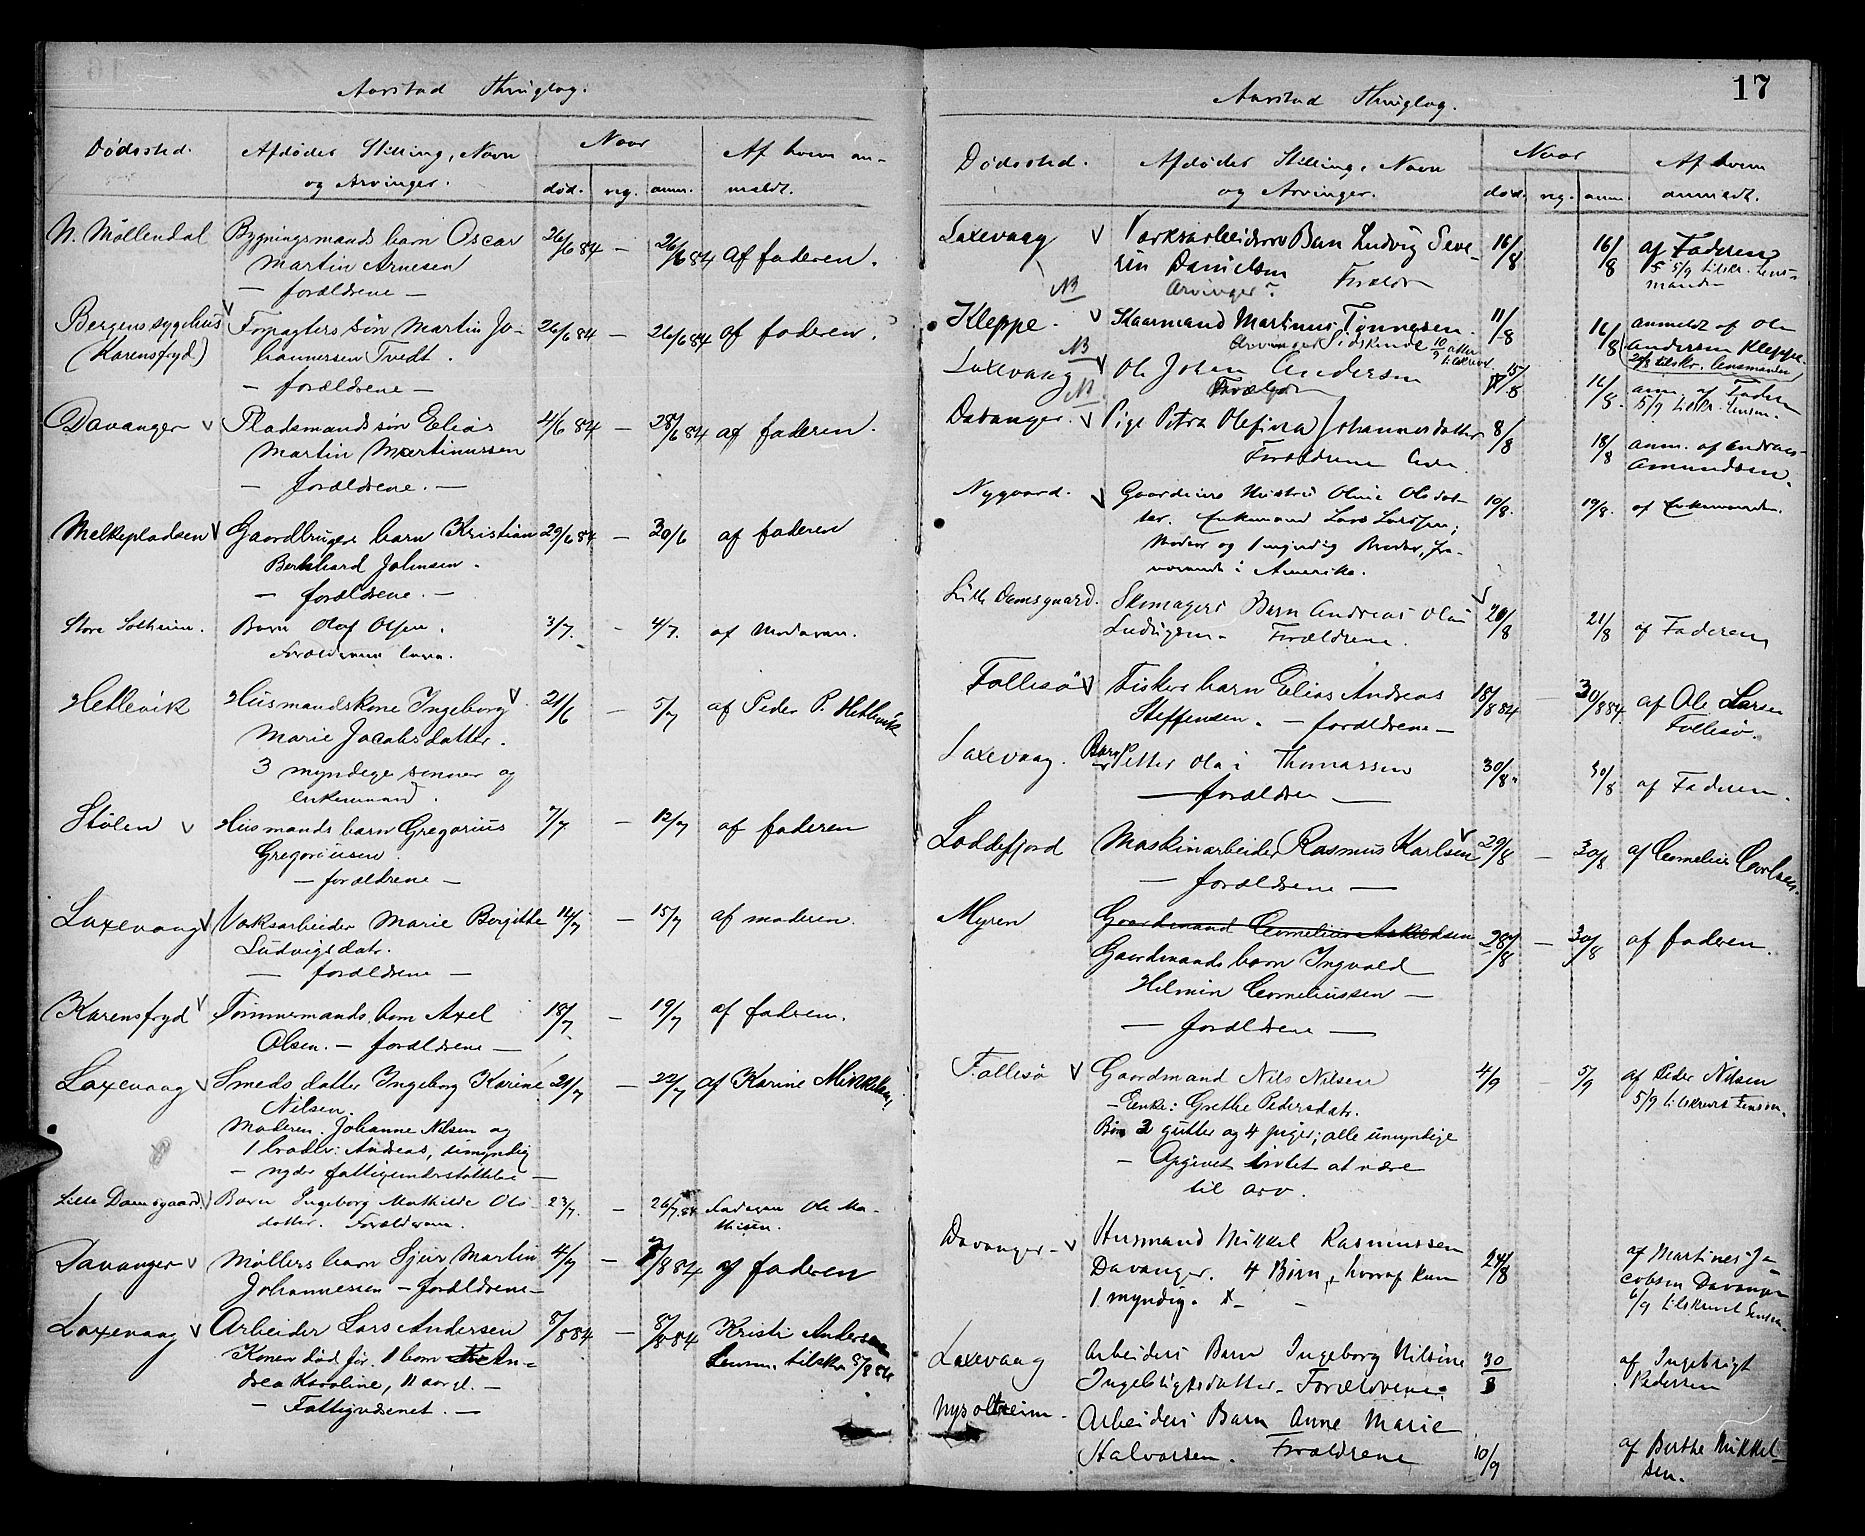 Aarstad Thinglag.
Dødssted.
Afdødes Stilling, Navn
og Arvinger.
Naar
død. reg. anm.
Af hvem an-
meldt.
N. Møllendal Bygningsmands barn Oscar 26/6 84 — 26/6 84 af faderen.
Martin Arnesen
— forældrene —
Bergens sygehus Forpagters søn Martin Jo- 26/6 84 — 26/6 84 af faderen.
(Karensfryd) hannessen Tvedt.
— forældrene —
Davanger v Pladsmands søn Elias 4/6 84 — 28/6 84 af faderen.
Martin Martinussen
— forældrene. —
Melkepladsen v Gaardbrugers barn Kristian 29/6 84 — 30/6 af faderen
Bernhard Johnsen.
— forældrene. —
Store Solheim. Barn Olaf Olsen. 3/7 — 4/7. af Moderen.
Forældrene leve.
Hetlevik Husmandskone Ingeborg v 21/6 — 5/7 af Peder P. Hetlevik
Marie Jacobsdatter.
3 myndige sønner og
enkemand.
Stølen v Husmands barn Gregorius 7/7 — 12/7 af faderen
Gregoriusen.
— forældrene —
Laxevaag v Værksarbeider Marie Bergitte 14/7 — 15/7 af moderen.
Ludvigsdatr.
— forældrene —
Karensfryd v Tømmermands barn Axel 18/7 — 19/7 af faderen.
Olsen. — forældrene —
Laxevaag v Smeds datter Ingeborg Karine 21/7 — 22/7 af Karine Mikkelsen
Nilsen.
Moderen Johanne Nilsen og
1 broder: Andreas, umyndig
— nyder fattigunderstøttelse —
Lille Damsgaard. v Barn Ingeborg Mathilde Ols- 23/7. — 26/7 84 Faderen Ole Ma-
datter. Forældrene. thisen.
Davanger v Møllers barn Sjur Martin 4/7 — /8 84 af faderen
Johannessen — forældrene —
Laxevaag v Arbeider Lars Andersen 8/8 84 — 8/8 84 Kristi Andersen
Konen død før. 1 barn An- Lensm. tilskr 8/8 84
drea Karoline, 11 aar gl. —
— Fattigvæsenet. —
17
Aarstad Thinglag.
Dødssted.
Afdødes Stilling, Navn
og Arvinger.
Naar
død. reg. anm.
Af hvem
anmeldt.
Laxevaag v Værksarbeiders Barn Ludvig Seve- 16/8 16/8 af Faderen
rin Danielsen 5/9 tilskr. Lens-
Arvinger? Foræld manden
NB
Kleppe. v Martinus Tønnesen. 11/8 16/8 anmeldt af Ole
Arvinger Sidskende 10/9 atter tilskrevet Andersen Kleppe.
tilskr. Lensmanden
NB
Laxevaag v Ole Johan Andersen 15/8 16/8. anm. af Faderen
Forældr 5/9 tilskr. Lensm.
NB
Davanger. v Pige Petra Olefina Johannesdatter 8/8 18/8 anm. af Andreas
Forældrene leve. Amundsen.
Nygaard. v Gaardeiers Hustru Oline Olsdat- 10/8. 19/8. af Enkemanden.
ter. Enkemand Lars Larssen;
Moder og 1 myndig Broder, fra-
værende i Amerika.
Lille Damsgaard. Skomagers Barn Andreas Olai v 20/8 21/8 af Faderen
Ludvigsen. Forældrene.
Follesø v Fiskers barn Elias Andreas 18/8 84 — 30/8 84 af Ole Larsen
Steffensen. — forældrene — Follesø.
Laxevaag. Barn Petter Olai Thomassen 30/8. 30/8 af Faderen.
— forældren —
Loddefjord Maskinarbeider Rasmus Karlsen v 29/8 — 30/8 af Cornelius Carlsen.
— forældrene —
Myren Gaardmand Cornelius Askildsen 28/8 — 30/8 af faderen.
Gaardmands barn Ingvald
Helmin Corneliussen —
— forældrene —
Follesø v Gaardmand Nils Nilsen 4/9 — 5/9 af Peder Nilsen
— Enke: Grethe Pedersdatr. 5/9 tilskrevet Lensm.
Børn 2 gutter og 4 piger; alle umyndige
— Opgivet intet at være
til arv.
Davanger — v Husmand Mikkel Rasmussen 24/8 af Martines Ja-
Davanger. 4 Børn, hvoraf kun cobsen Davanger
1 myndig. 6/9 tilskrevet Lensm.
Laxevaag Arbeiders Barn Ingeborg Nilsine 30/8 af Ingebrigt
Ingebrigtsdatter. Forældrene. Pedersen
Nysolheim. Arbeiders Barn Anne Marie
Halvorsen. Forældrene 10/9 af Berthe Mikkel-
sen.